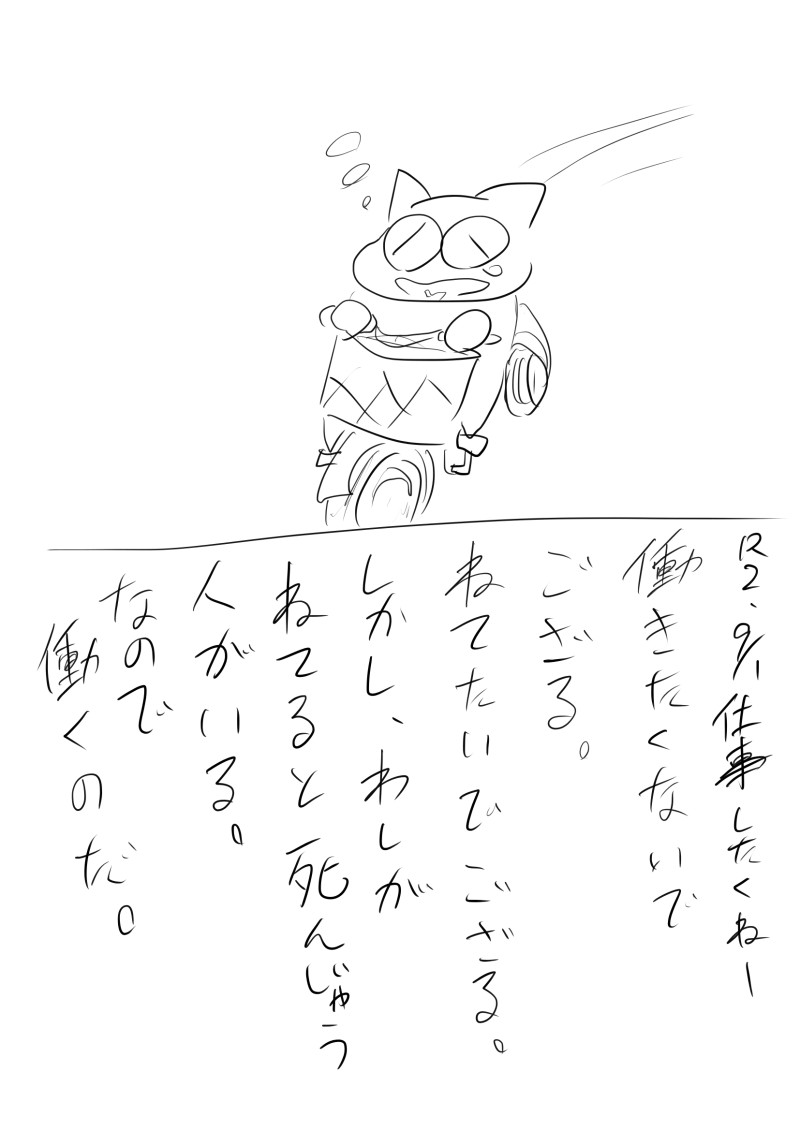 R2.9/1 仕事したくねー
働きたくないで
ござる。
ねてたいでござる。
しかし、わしが
ねてると死んじゃう
人がいる。
なので
働くのだ。